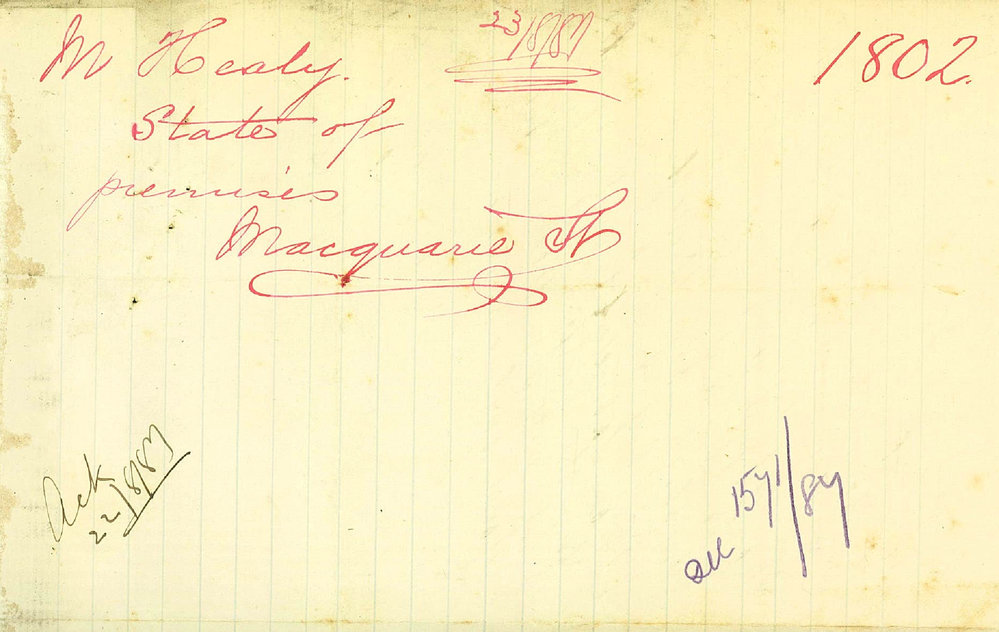 23/8/87
1802.
M Healy.
State of
premises
Macquarie St
Ack
22/8/87
see 1571/87